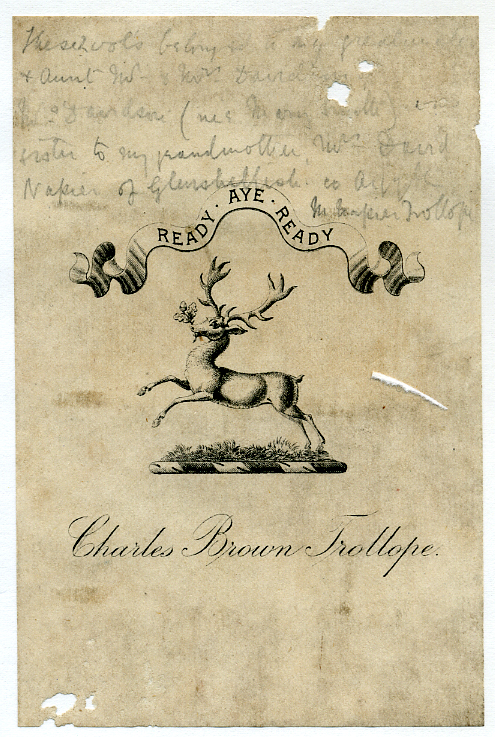 These vol's belonged to my
& Aunt Mr & Mrs Davidson
Mrs Davidson (née Mary Smith) was
sister to my grandmother, Mrs David
Napier of Glenshellish co
M. Napier Trollope
READY · AYE · READY
Charles Brown Trollope.